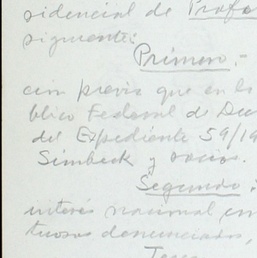 sidencial de Profe
siguiente:
Primero.-
cion previa que en la
blico Federal de Du
del Expediente 59/19
Simbeck y socios.
Segundo:
interés nacional en
tuosos denunciados,